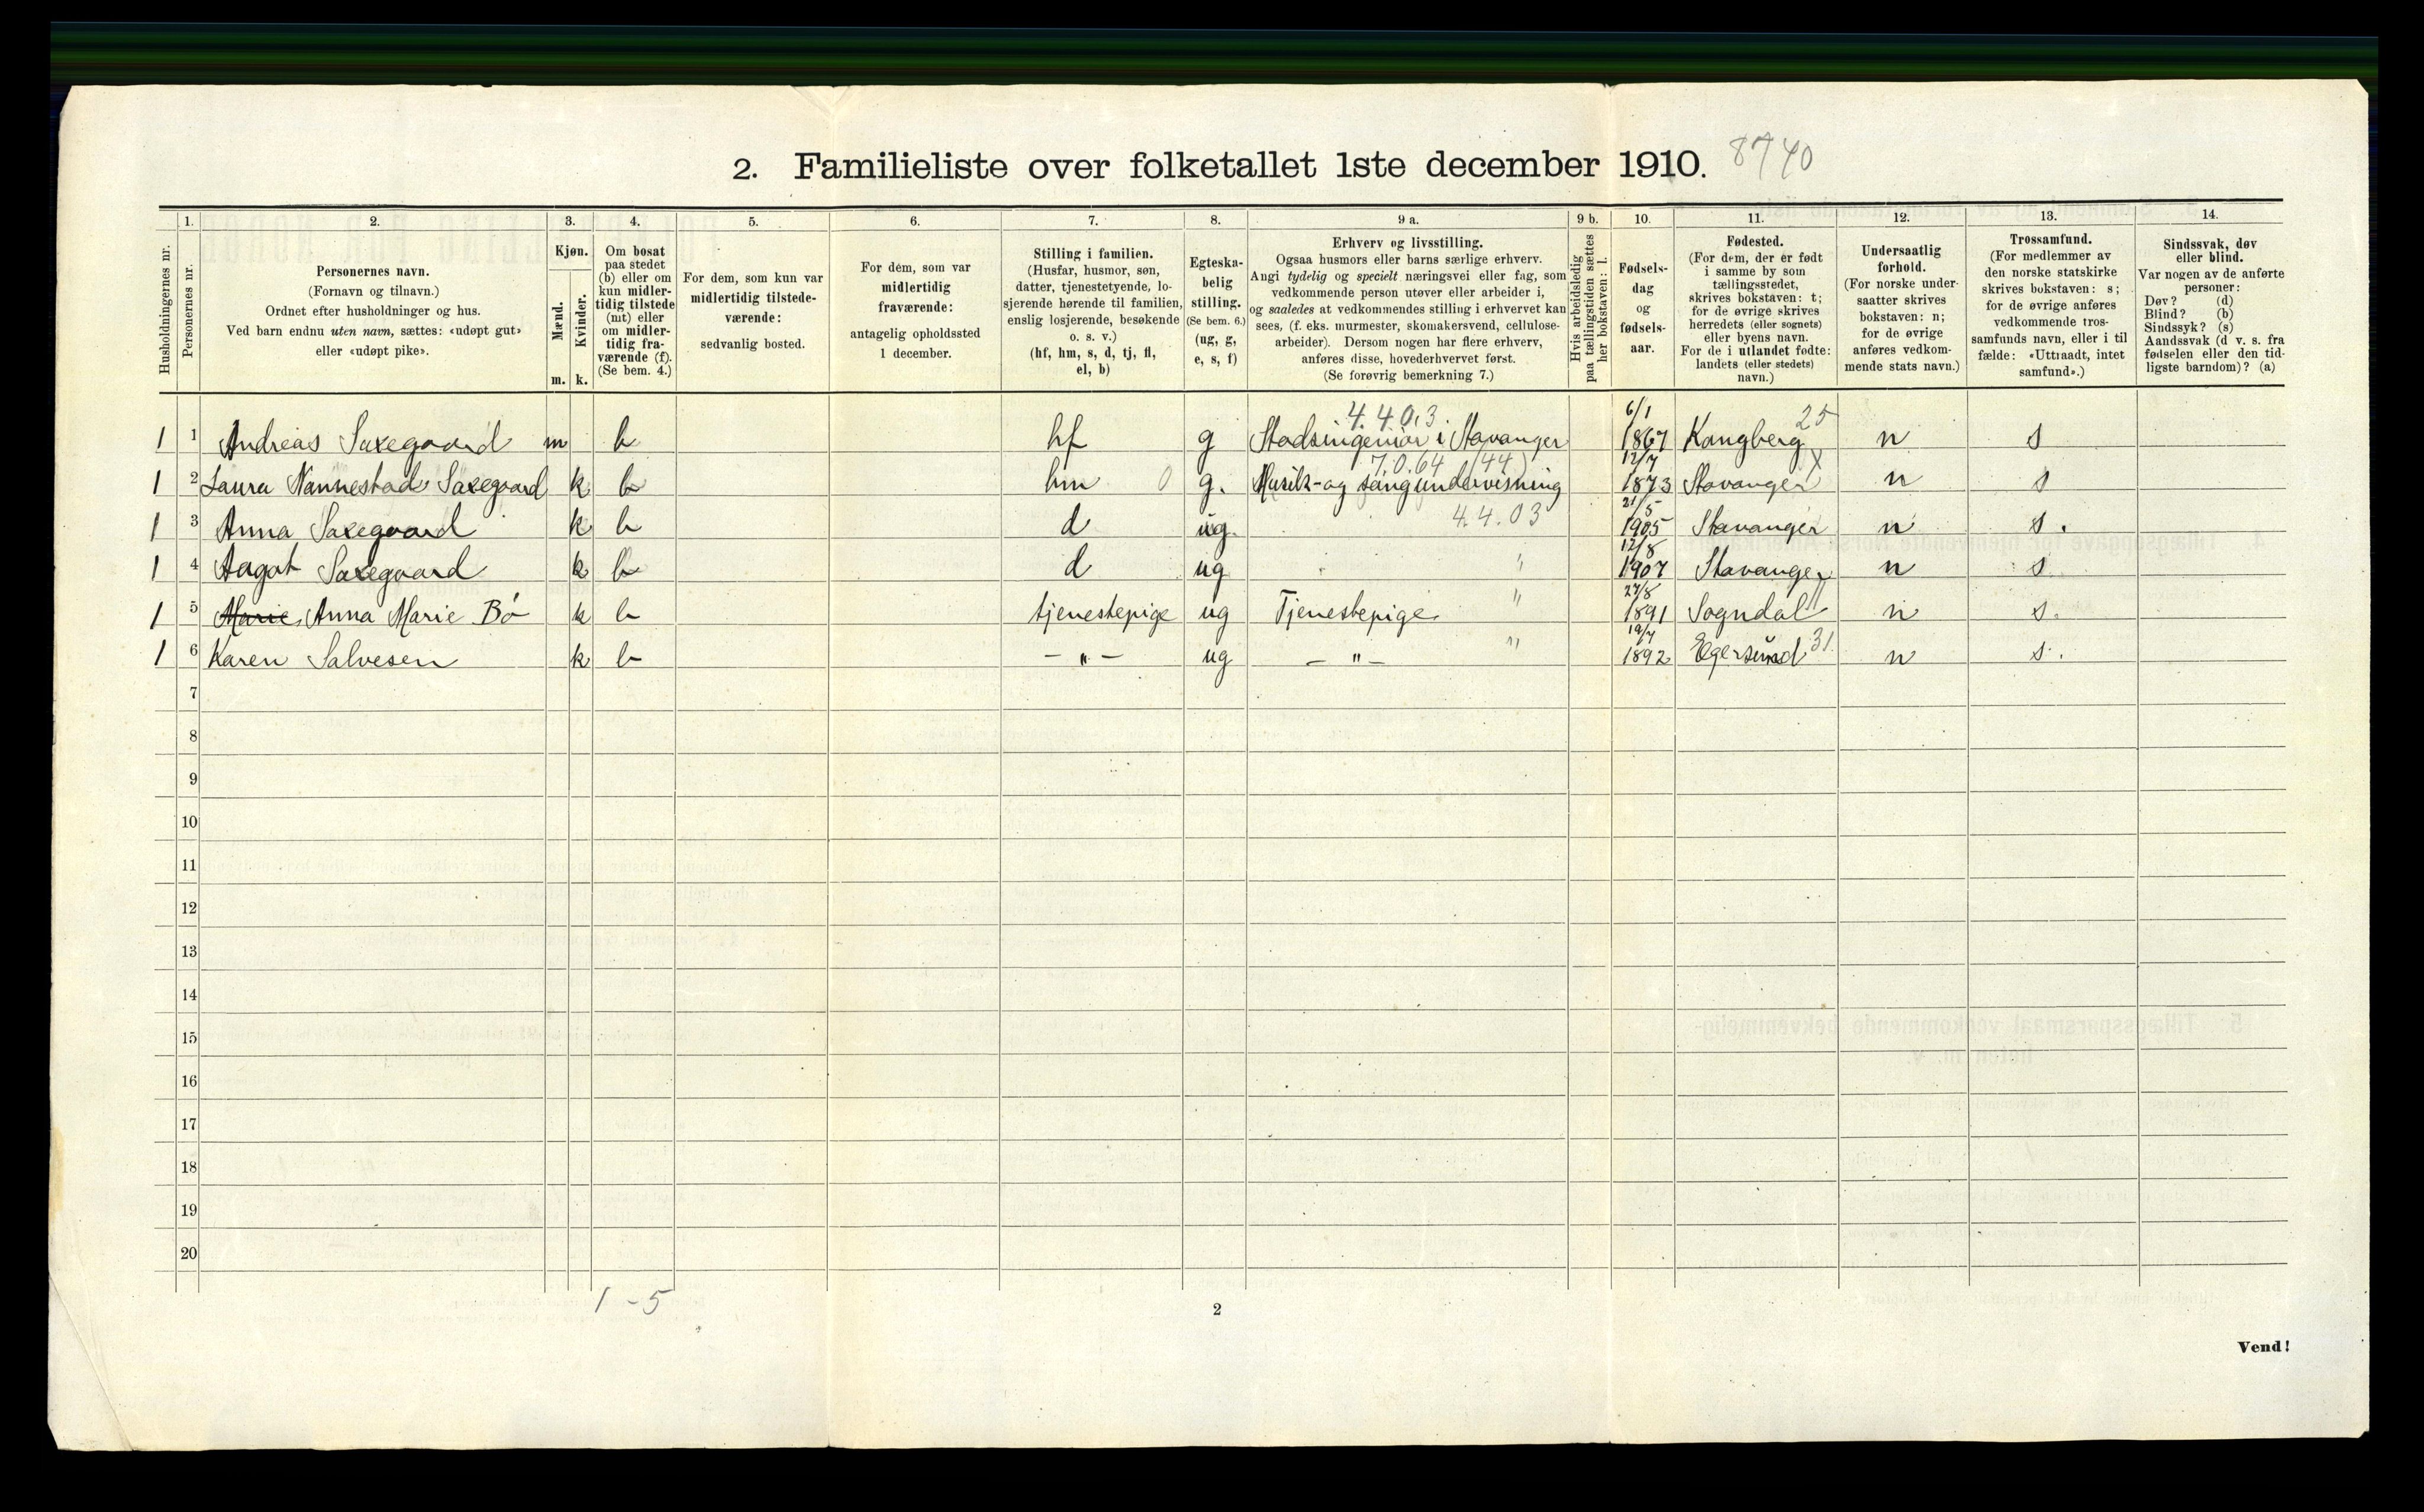 2. Familieliste over folketallet 1ste december 1910. 8740
Husholdningernes nr.
1.
Personernes nr.
2.
Personernes navn.
(Fornavn og tilnavn.)
Ordnet efter husholdninger og hus.
Ved barn endnu uten navn, sættes: «udøpt gut»
eller «udøpt pike».
3.
Kjøn.
Mænd.
Kvinder.
m. k.
4.
Om bosat
paa stedet
(b) eller om
kun midler-
tidig tilstede
(mt) eller
om midler-
tidig fra-
værende (f).
(Se bem. 4.)
5.
For dem, som kun var
midlertidig tilstede-
værende:
sedvanlig bosted.
6.
For dem, som var
midlertidig
fraværende:
antagelig opholdssted
1 december.
7.
Stilling i familien.
(Husfar, husmor, søn,
datter, tjenestetyende, lo-
sjerende hørende til familien,
enslig losjerende, besøkende
o. s. v.)
(hf, hm, s, d, tj, fl,
el, b)
8.
Egteska-
belig
stilling.
(Se bem. 6.)
(ug, g,
e, s, f)
9 a.
Erhverv og livsstilling.
Ogsaa husmors eller barns særlige erhverv.
Angi tydelig og specielt næringsvei eller fag, som
vedkommende person utøver eller arbeider i,
og saaledes at vedkommendes stilling i erhvervet kan
sees, (f. eks. murmester, skomakersvend, cellulose-
arbeider). Dersom nogen har flere erhverv,
anføres disse, hovederhvervet først.
(Se forøvrig bemerkning 7.)
9 b.
Hvis arbeidsledig
paa tællingstiden sættes
her bokstaven: l.
10.
Fødsels-
dag
og
fødsels-
aar.
11.
Fødested.
(For dem, der er født
i samme by som
tællingsstedet,
skrives bokstaven: t;
for de øvrige skrives
herredets (eller sognets)
eller byens navn.
For de i utlandet fødte:
landets (eller stedets)
navn.)
12.
Undersaatlig
forhold.
(For norske under-
saatter skrives
bokstaven: n;
for de øvrige
anføres vedkom-
mende stats navn.)
13.
Trossamfund.
(For medlemmer av
den norske statskirke
skrives bokstaven: s;
for de øvrige anføres
vedkommende tros-
samfunds navn, eller i til
fælde: «Uttraadt, intet
samfund».)
14.
Sindssvak, døv
eller blind.
Var nogen av de anførte
personer:
Døv? (d)
Blind? (b)
Sindssyk? (s)
Aandssvak (d v. s. fra
fødselen eller den tid-
ligste barndom)? (a)
4.4.03 6/1 25
1 1 Andreas Saxegaard m b hf g Stadsingeniør i Stavanger 1867 Kongberg n s
7.0.64 (44) 12/7
1 2 Laura Nannestad Saxegaard k b hm 0 g. Musik- og sangundervisning 1873 Stavanger n s
4.4.03 21/5
1 3 Anna Saxegaard k b d ug. 1905 Stavanger n s.
12/8
1 4 Aagot Saxegaard k b d ug " 1907 Stavanger n s
27/8
1 5 Marie, Anna Marie Bö k b tjenestepige ug Tjenestepige " 1891 Sogndal n s.
19/7
1 6 Karen Salvesen k b - " - ug - " - " 1892 Egersund 31 n s.
7
8
9
10
11
12
13
14
15
16
17
18
19
20
1 - 5
2
Vend!